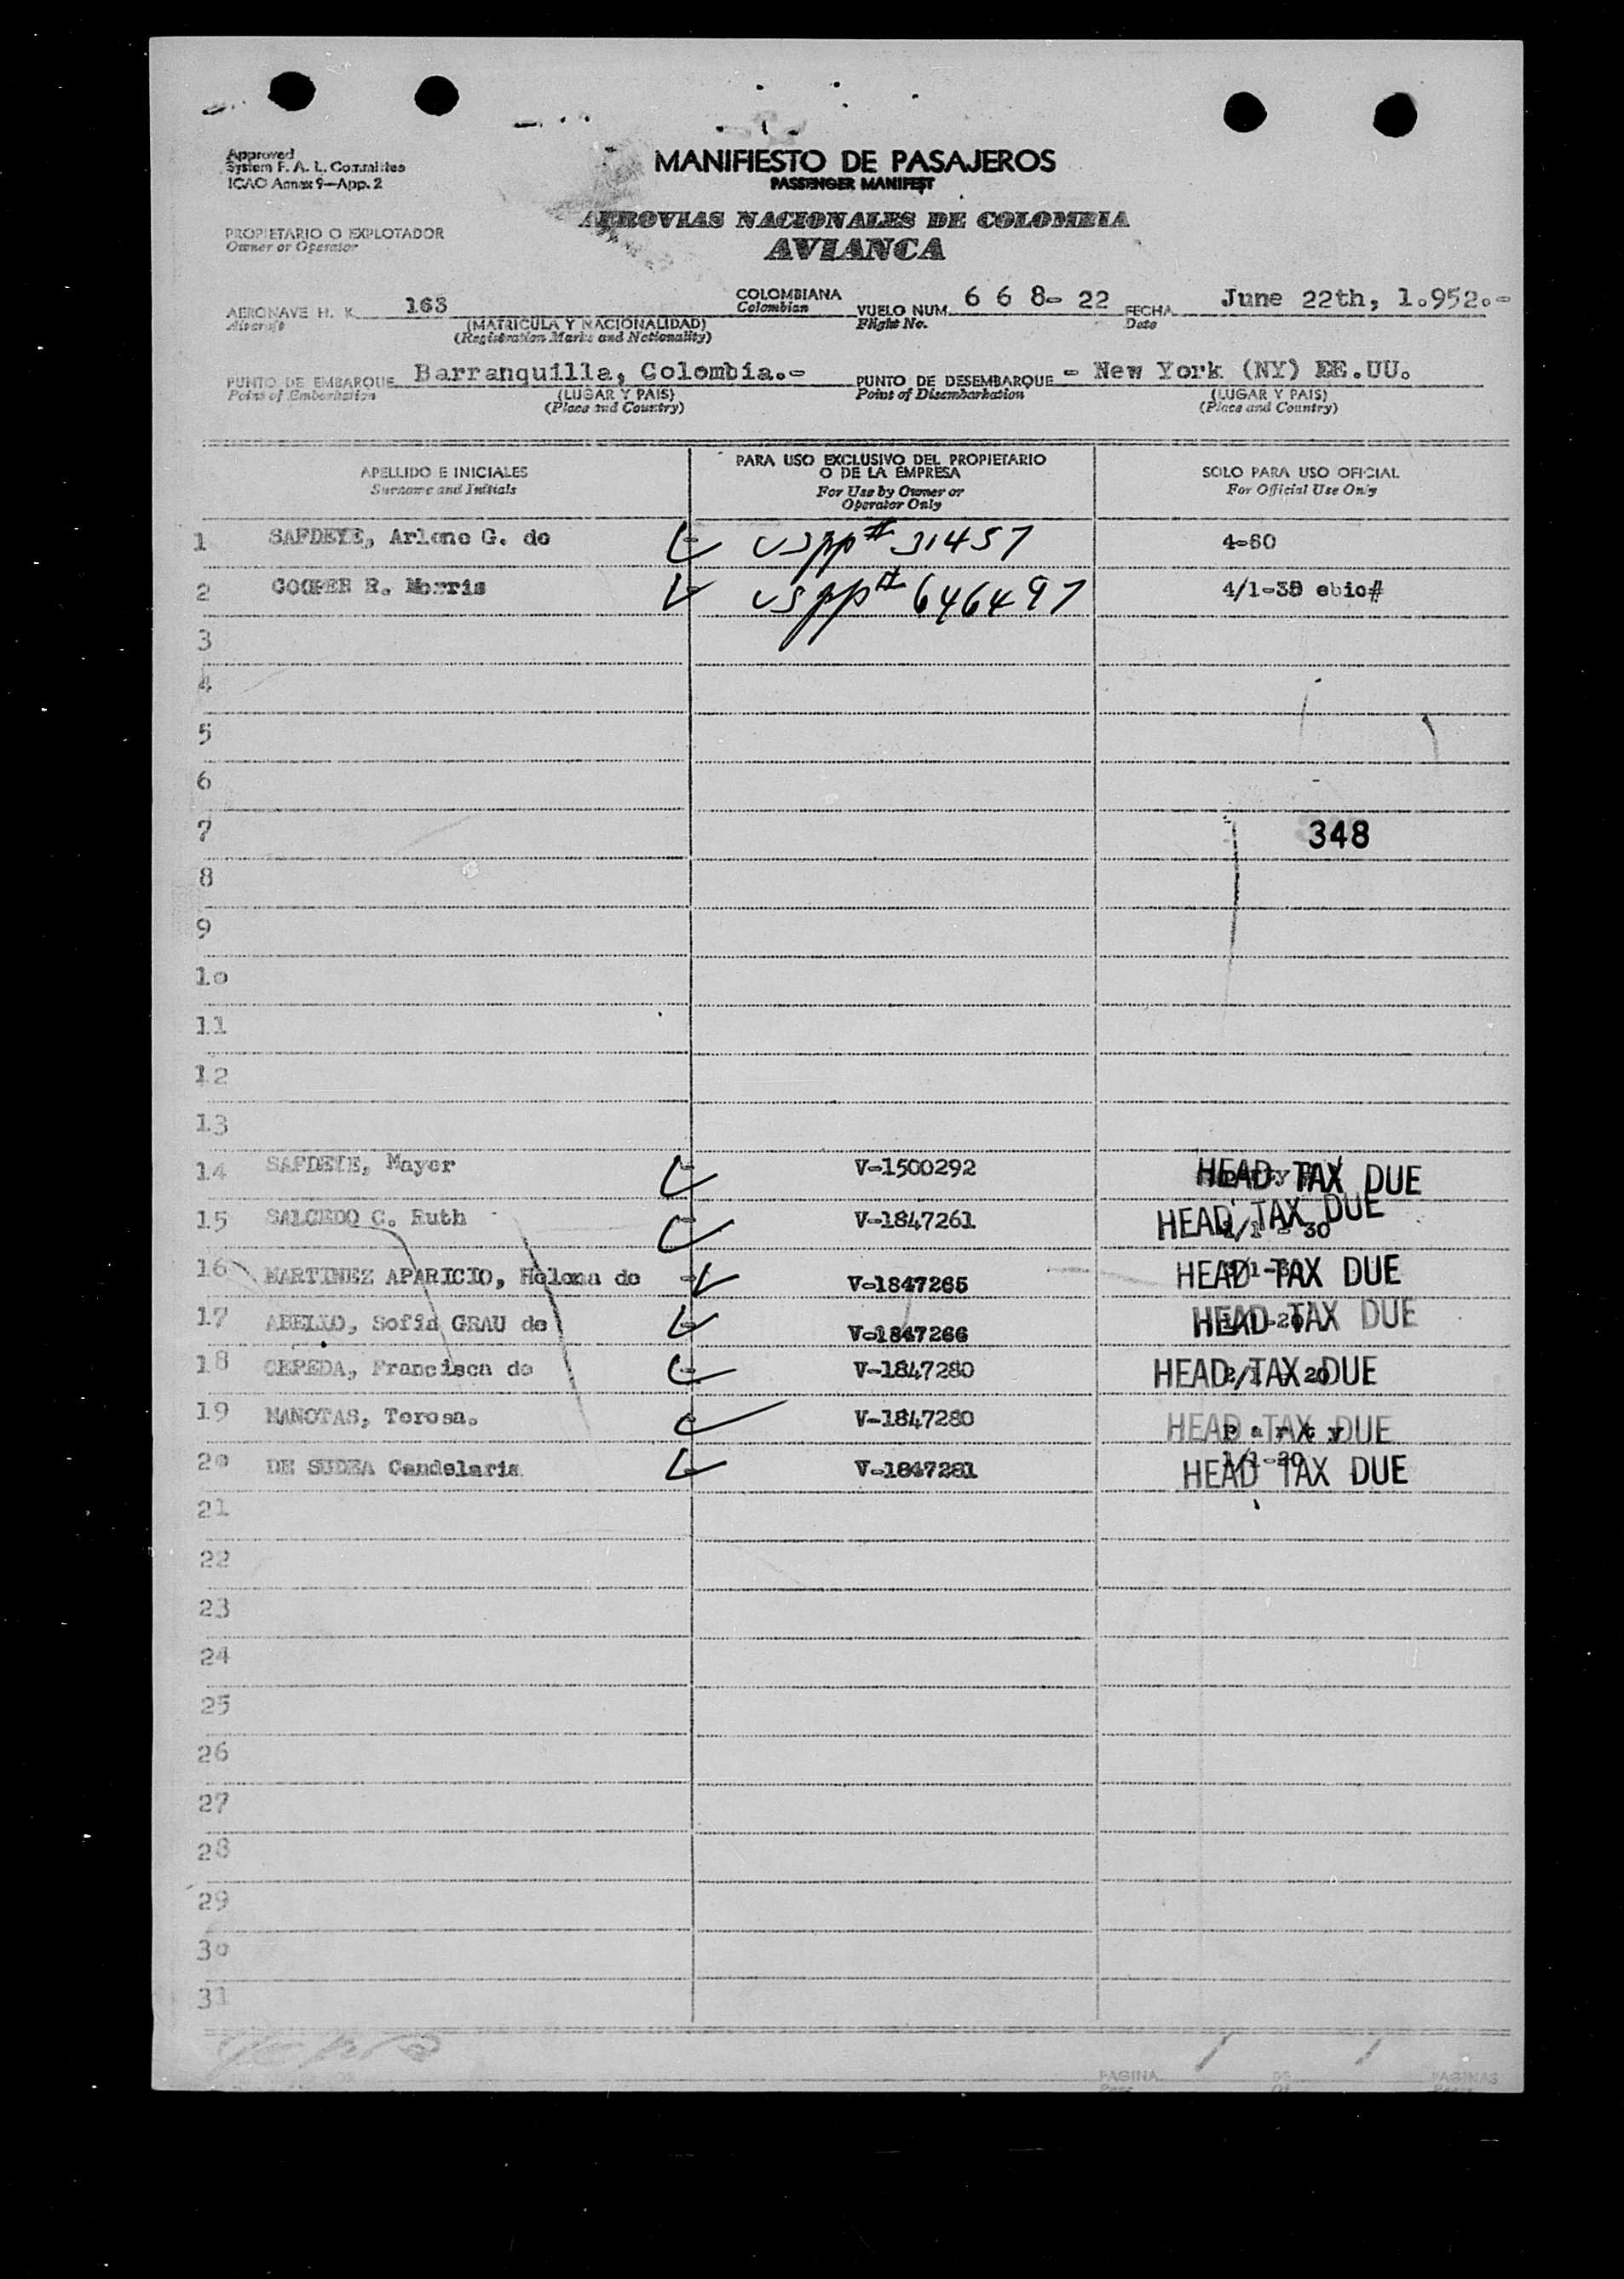 Approved
System F. A. L. Committee
ICAO Annex 9—App. 2
MANIFIESTO DE PASAJEROS
PASSENGER MANIFEST
AEROVIAS NACIONALES DE COLOMBIA
AVIANCA
PROPIETARIO O EXPLOTADOR
Owner or Operator
AERONAVE H. K. 163 COLOMBIANA VUELO NUM. 6 6 8- 22 FECHA June 22th, 1.952.-
Aircraft (MATRICULA Y NACIONALIDAD) Colombian Flight No. Date
(Registration Marks and Nationality)
PUNTO DE EMBARQUE Barranquilla, Colombia.- PUNTO DE DESEMBARQUE - New York (NY) EE.UU.
Point of Embarkation (LUGAR Y PAIS) Point of Disembarkation (LUGAR Y PAIS)
(Place and Country) (Place and Country)
APELLIDO E INICIALES PARA USO EXCLUSIVO DEL PROPIETARIO O DE LA EMPRESA SOLO PARA USO OFICIAL
Surname and Initials For Use by Owner or Operator Only For Official Use Only
1 SAFDEYE, Arlene G. de uspp# 31457 4-60
2 COOPER R. Morris uspp# 646497 4/1-38 ebic#
3
4
5
6
7 348
8
9
10
11
12
13
14 SAFDEYE, Mayer V-1500292 HEAD TAX DUE
15 SALCEDO C. Ruth V-1847261 HEAD TAX DUE
16 MARTINEZ APARICIO, Helena de V-1847265 HEAD TAX DUE
17 Sofia GRAU de V-1847266 HEAD TAX DUE
18 CEPEDA, Francisca de V-1847280 HEAD TAX DUE
19 MANOTAS, Teresa. V-1847280 HEAD TAX DUE
20 DE Candelaria V-1847281 HEAD TAX DUE
21
22
23
24
25
26
27
28
29
30
31
PAGINA 1 DE 1 PAGINAS